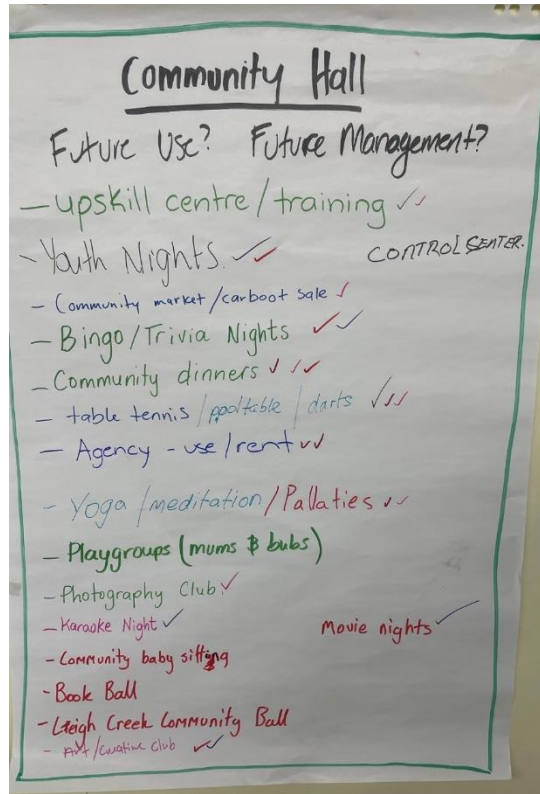 Community Hall
Future Use? Future Management?
- upskill centre / training ✓✓
- Youth Nights. ✓✓
CONTROL SENTER.
- Community market / carboot sale ✓
- Bingo / Trivia Nights ✓✓
- Community dinners ✓✓✓
- table tennis / pooltable / darts ✓✓✓
- Agency - use / rent ✓✓
- Yoga / meditation / Pallaties ✓✓
- Playgroups (mums & bubs)
- Photography Club ✓
- Karaoke Night ✓
Movie nights ✓
- Community baby sitting
- Book Ball
- Leigh Creek Community Ball
- Art / Creative Club ✓✓